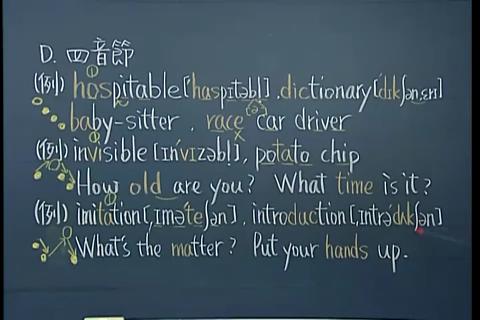 D. 四音節
(例) hospitable [ˈhɑspɪtəbl], dictionary [ˈdɪkʃənˌɛrɪ]
baby-sitter, race car driver
(例) invisible [ɪnˈvɪzəbl], potato chip
How old are you? What time is it?
(例) imitation [ˌɪməˈteʃən], introduction [ˌɪntrəˈdʌkʃən]
What's the matter? Put your hands up.